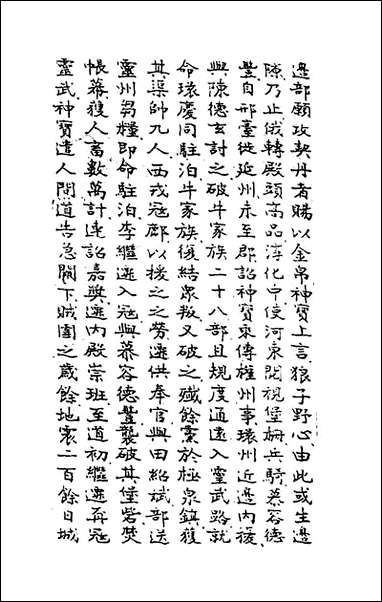 邊部願攻契丹者賜以金帛神寶上言狼子野心由此或生邊
隙乃止俄轉殿頭高品淳化中使河東閱視堡柵兵騎慕容德
豐自邢臺從延州未至郡詔神寶乘傳權州事環州近邊內擾
與陳德玄討之破牛家族二十八部且規度通遠入靈武路就
命環慶同駐泊牛家族復結眾叛又破之殲餘黨於極泉鎮獲
其渠帥九人西戎寇鄜以援之之勞遷供奉官與田紹斌部送
靈州芻糧即命駐泊李繼遷入寇與慕容德豐襲破其堡砦焚
帳幕獲人畜數萬計連詔嘉奬遷內殿崇班至道初繼遷再寇
靈武神寶遣人間道告急闕下賊圍之歲餘地震二百餘日城